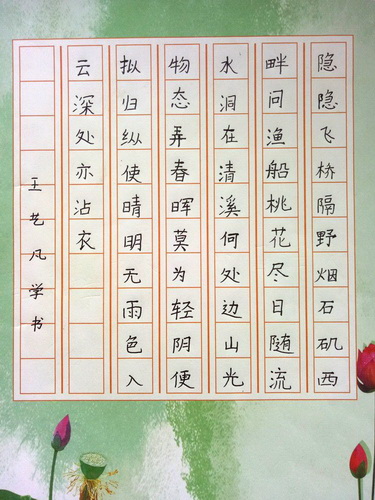 隐隐飞桥隔野烟石矶西
畔问渔船桃花尽日随流
水洞在清溪何处边山光
物态弄春晖莫为轻阴便
拟归纵使晴明无雨色入
云深处亦沾衣
王艺凡学书